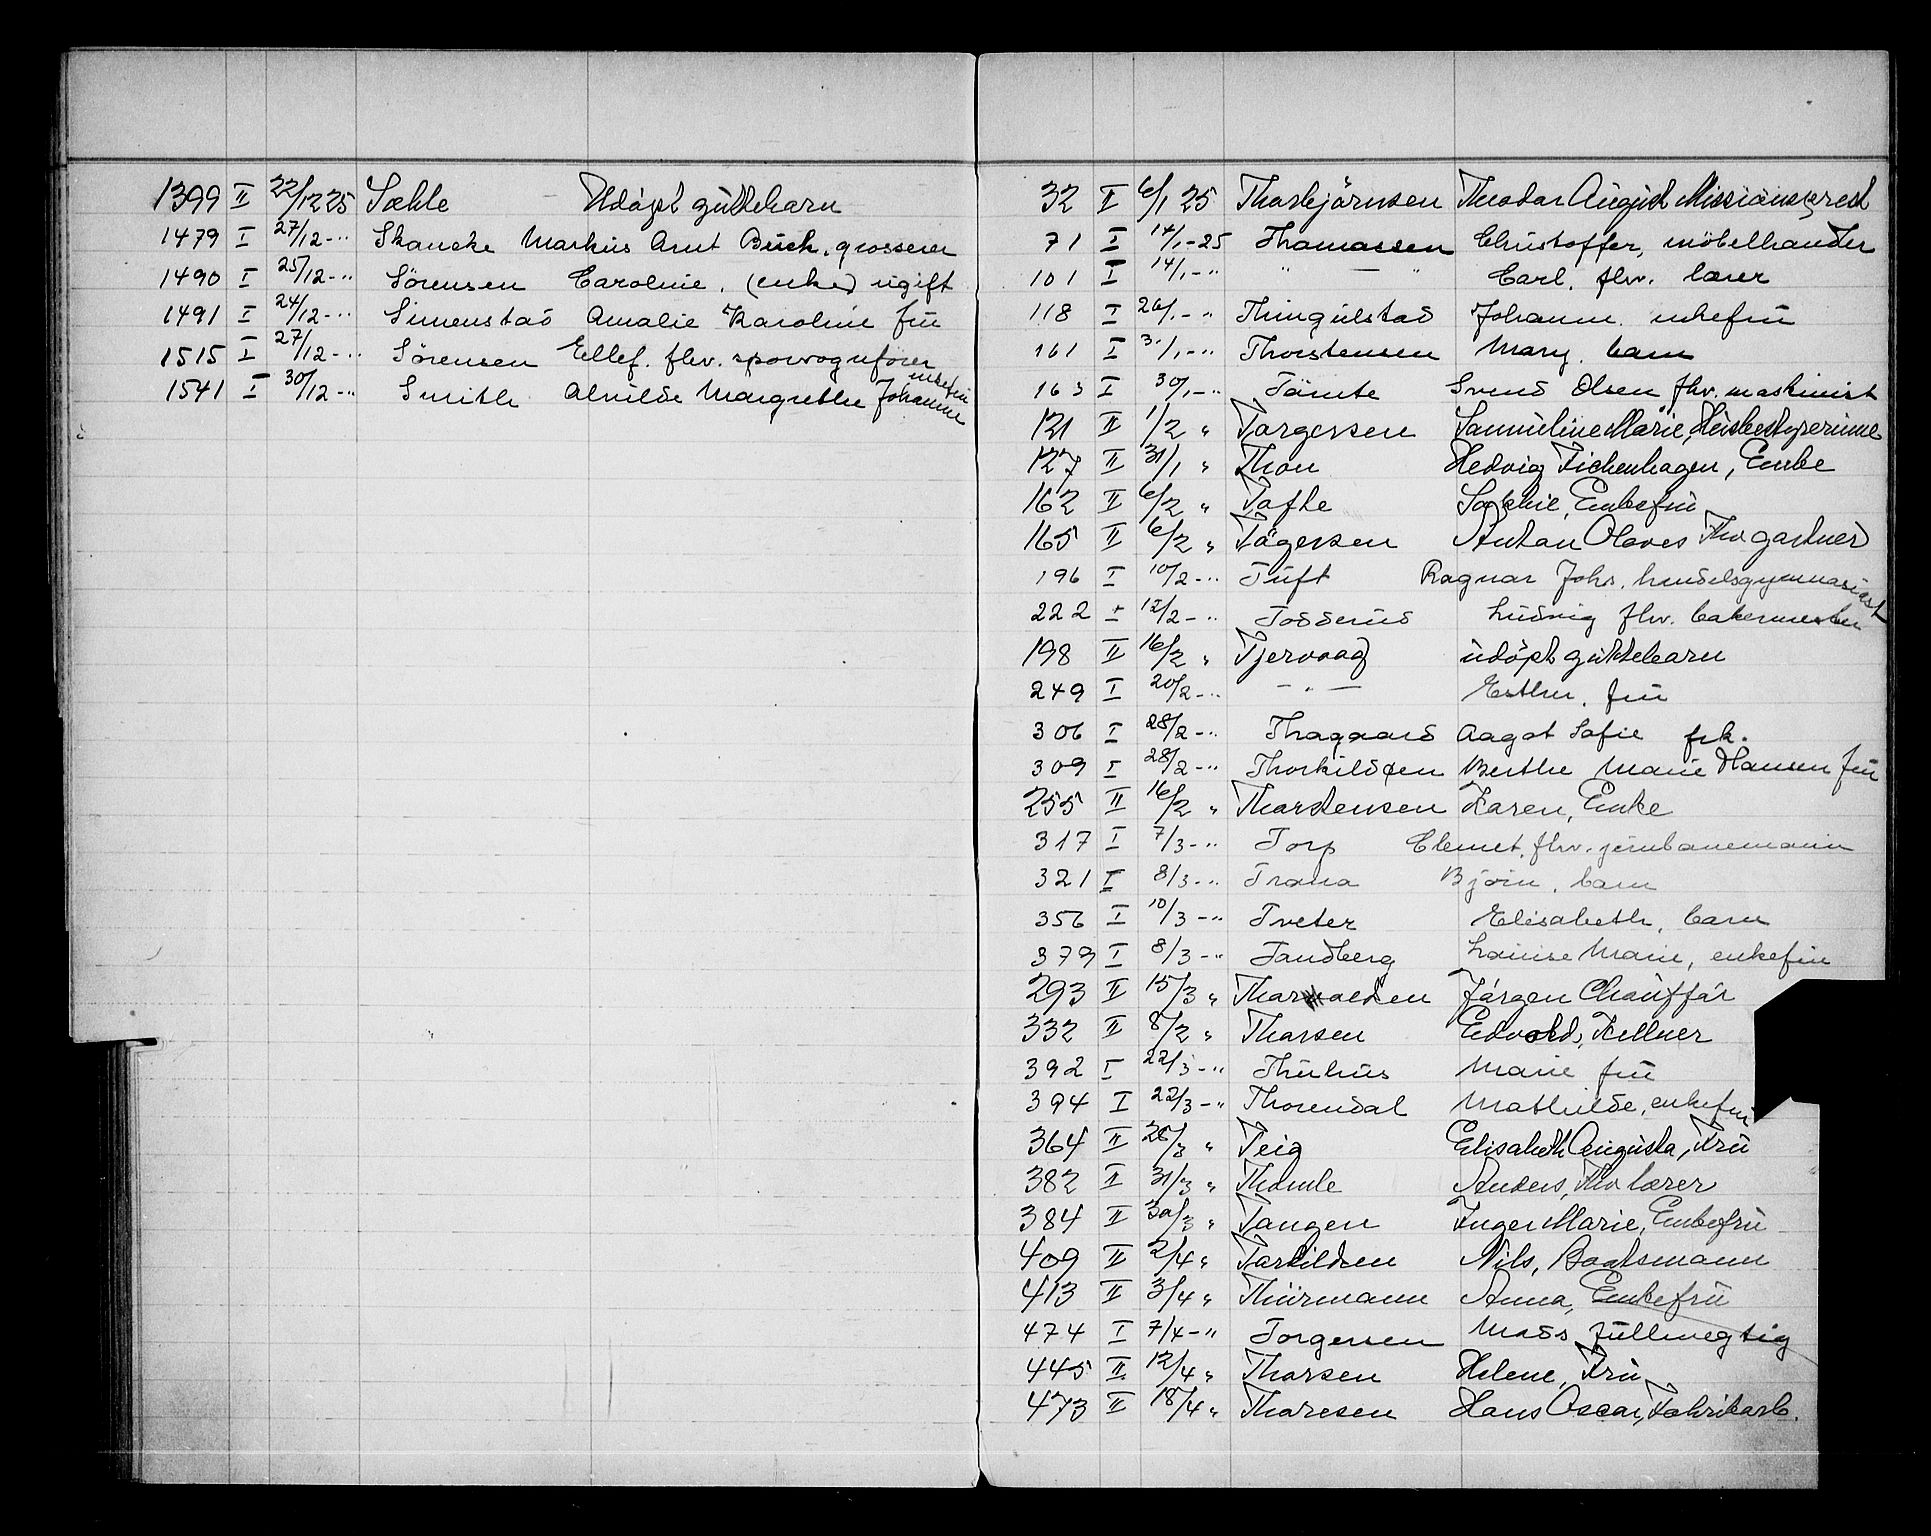 1399 II 22/12 25 Sæhle Udöpt guttebarn
1479 I 27/12 -"- Skancke Markus Arnt Buck, grosserer
1490 I 25/12 -"- Sörensen Caroline. (enke) ugift
1491 I 24/12 -"- Simenstad Amalie Karoline fru
1515 I 27/12 -"- Sörensen Ellef. fhv. sporvognfører
1541 I 30/12 -"- Smith Alvilde Margrethe Johanne enkefru
32 I 6/1 25 Thorbjörnsen Theodor August Missionsprest
71 I 14/1 -25 Thomassen Christoffer, möbelhandler
101 I 14/1 -" " — " Carl. fhv. lærer
118 I 26/1 -" Thingulstad Johanne. enkefru
161 I 31/1 -" Thorstensen Mary. barn
163 I 30/1 -" Tömte Svend Olsen fhv. maskinist
121 II 1/2 " Torgersen Samueline Marie, Husbestyrerinne
127 II 31/1 " Thon Hedvig Fichenhagen, Enke
162 II 6/2 " Tofte Sophie, Enkefru
165 II 6/2 " Tögersen Anton Olaves Fhv gartner
196 I 10/2 -" Tuft Ragnar Johs. handelsgymnasiast
222 I 12/2 -" Todderud Ludvig fhv. bakermester
198 II 16/2 " Tjervaag udöpt guttebarn
249 I 20/2 -" — " — Esther. fru
306 I 28/2 -" Thagaard Aagot Sofie frk.
309 I 28/2 -" Thorkildsen Berthe Marie Hansen fru
255 II 16/2 " Thorstensen Karen, Enke
317 I 7/3 -" Torp Clemet. fhv. jernbanemann
321 I 8/3 -" Trana Björn. barn
356 I 10/3 -" Tveter Elisabeth. barn
379 I 8/3 -" Tandberg Louise Marie, enkefru
293 II 15/3 " Thorvaldsen Jörgen Chaufför
332 II 8/2 " Thorsen Edvard, Kellner
392 I 22/3 -" Thuhus Marie fru
394 I 22/3 -" Thorendal Mathilde, enkefru
364 II 28/3 " Teig Elisabeth Augusta, Fru
382 II 31/3 " Thomle Anders, Fhv lærer
384 II 30/3 " Tangen Inger Marie, Enkefru
409 II 2/4 " Torkildsen Nils, Baatsmann
413 II 3/4 " Thürmann Anna, Enkefru
474 I 7/4 -" Torgersen Mads fullmegtig
445 II 12/4 " Thorsen Helene, Fru
473 II 18/4 " Thoresen Hans Oscar, Fabrikarb.